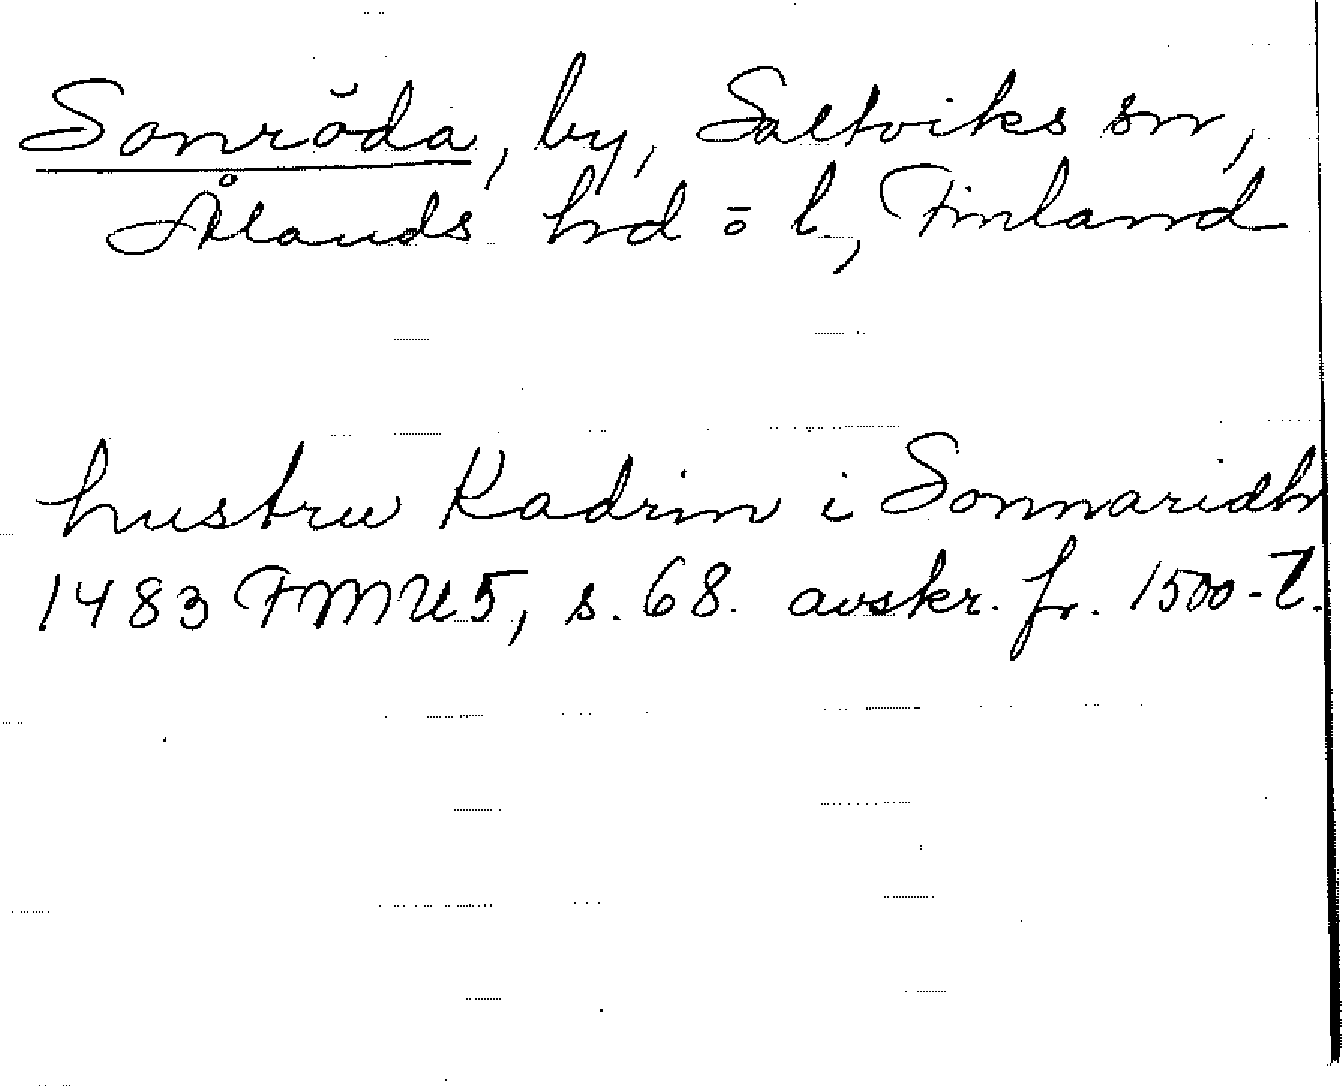 Sonröda, by, Saltviks sn,
Ålands hd ō l., Finland
hustru Kadrin i Sonnaridh
1483 FMU 5, s. 68. avskr. fr. 1500-t.